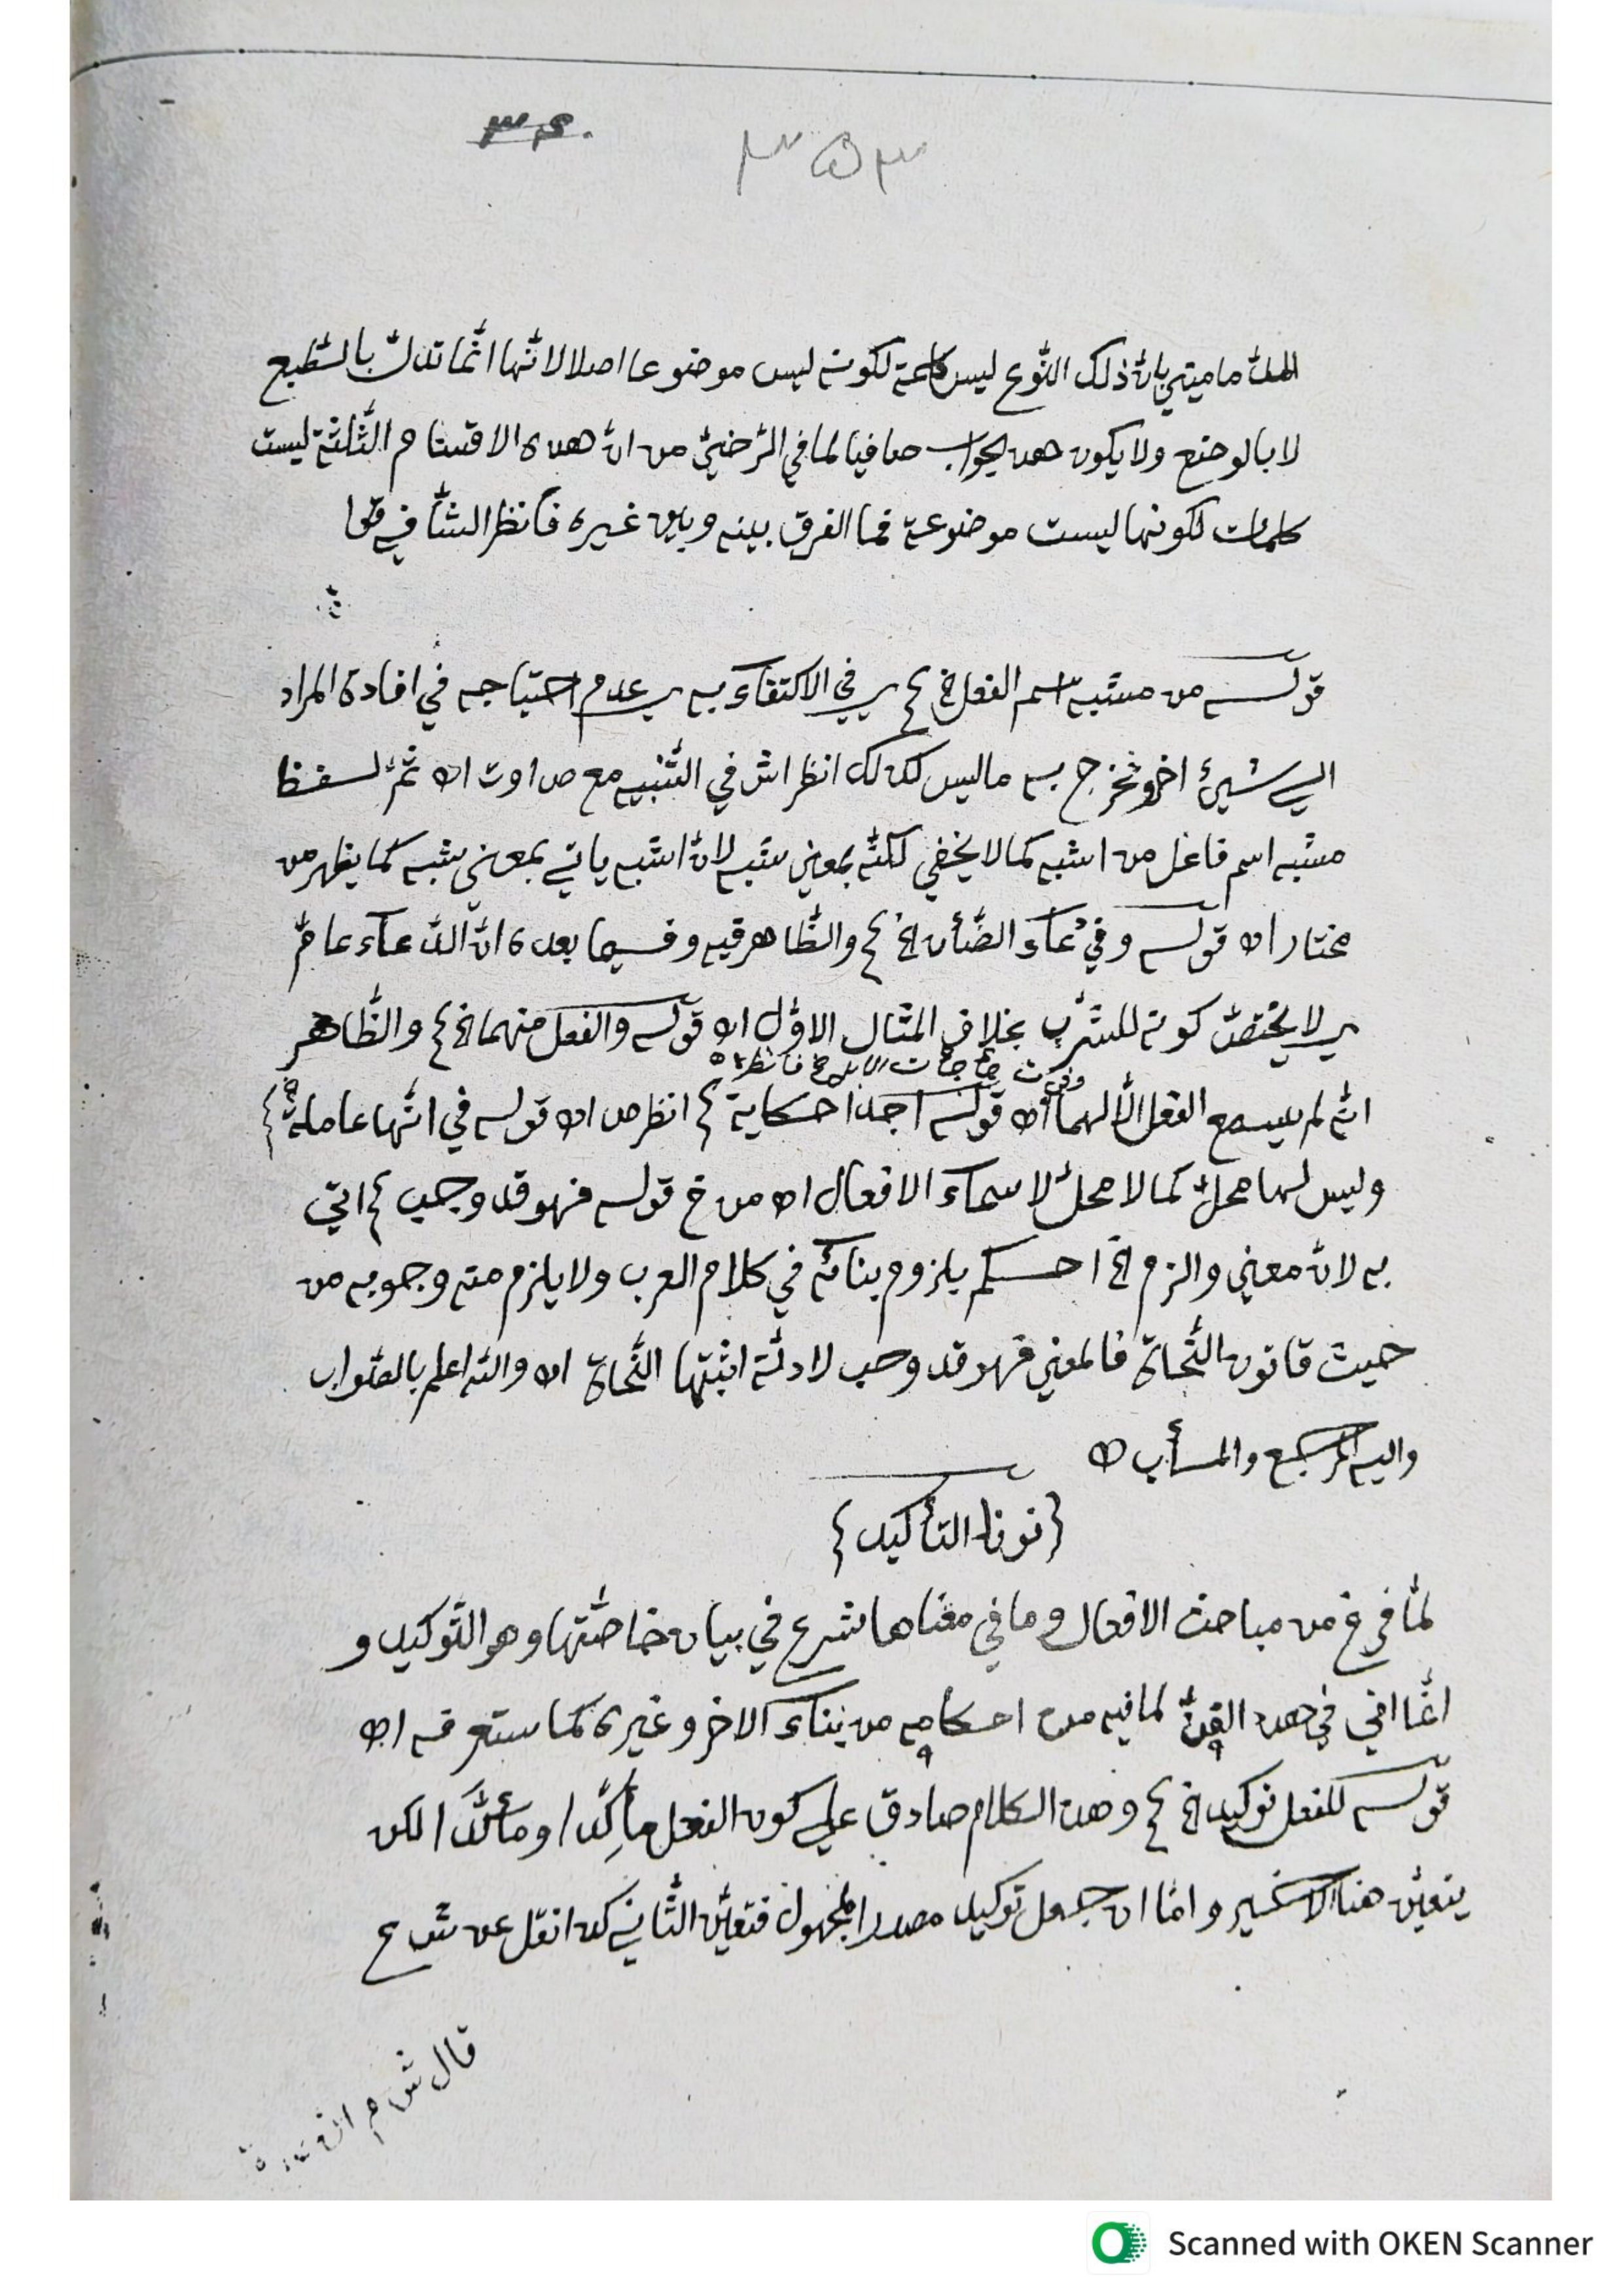 ٣٥٣
ماميني بانّ ذلك النّوع ليس كلمة لكونه ليس موضوعا اصلا لانّها انّما تدلّ بالطّبع
لا بالوضع ولا يكون هذ الجواب صافيا لما في الرّضيّ من انّ هذه الاقسام الثّلثة ليست
كلمات لكونها ليست موضوعة فما الفرق بينه وبين غيره فانظر الشّافي
قولـــه من مشبه اسم الفعل الخ ع ي في الاكتفاء به ي عدم احتياجه في افادة المراد
الي شيئ اخر ونخرج به ما ليس كذلك انظر اش في التّنبيه مع اه ثمّ لفظ
مشبه اسم فاعل من اشبه كما لا يخفي لكنّه بمعني شبه لانّ اشبه ياتي بمعني شبه كما يظهر من
مختار اه قولـه وفي دعآء الضّأن الخ ع والظّاهر فيه وفيما بعده انّ الدّعآء عامّ
ي لا يختصّ كونه للشّرب بخلاف المثال الاوّل اه قولـه والفعل منهما الخ ع والظّاهر
انّه لم يسمع الفعل الّا لهما اه قولـه اجدا حكاية ع انظر ص اه قولـه في انّها عاملة
وليس لها محلّ كما لا محلّ لاسمآء الافعال اه من خ قولـه فهو قد وجب ع اتي
به لانّ معني والزم الخ احكم بلزوم بنائه في كلام العرب ولا يلزم منه وجوبه من
حيث قانون النّحاة فالمعني فهو قد وجب لادلّة اثبتها النّحاة اه والله اعلم بالصّواب
واليه المرجع والمـأب اه
{نونا التأكيد}
لمّا فرغ من مباحث الافعال وما في معناها شرع في بيان خاصّتها وهو التّوكيد و
في هذ الفنّ لما فيه من احكامه من بنآء الاخر وغيره كما ستعرفه اه
قولـه للفعل توكيد الخ ع وهذ الكلام صادق علي كون الفعل مأكِّدا ومأكَّدا لكن
يتعيّن هنا الاخير وامّا ان جعل توكيد مصدرا لمجهول فتعيّن الثّاني كذ انقل عن
قال ش م
Scanned with OKEN Scanner